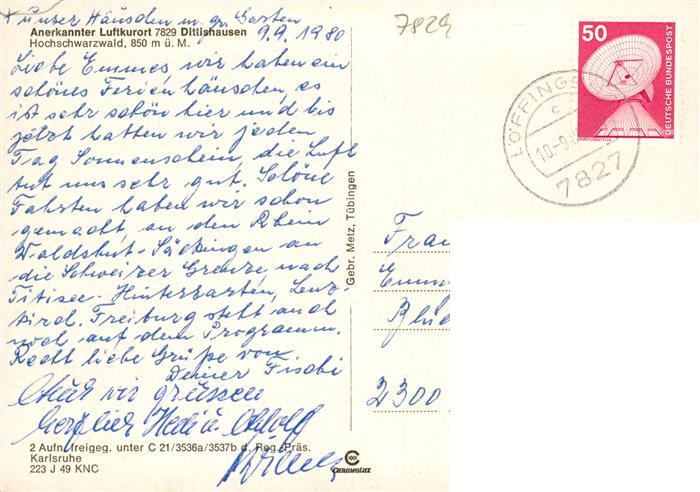 x unser Häuschen m. gr. Garten
Anerkannter Luftkurort 7829 Dittishausen
Hochschwarzwald, 850 m ü. M.
9.9.1980
Liebe Emmes, wir haben ein
schönes Ferienhäuschen, es
ist sehr schön hier und bis
jetzt hatten wir jeden
Tag Sonnenschein, die Luft
tut uns sehr gut. Schöne
Fahrten haben wir schon
gemacht, an den Rhein
Waldshut-Säckingen an
die Schweizer Grenze, nach
Titisee-Hinterzarten, Lenz-
kirch. Freiburg steht auch
noch auf dem Programm.
Recht liebe Grüße von
Deiner Fischi
Auch wir grüssen
herzlich Hedi u. Adolf
2 Aufn. freigeg. unter C 21/3536a/3537b d. Reg.-Präs.
Karlsruhe
223 J 49 KNC
Gebr. Metz, Tübingen
CHROMOLUX
7829
50
DEUTSCHE BUNDESPOST
LÖFFINGE
c
10.-9.
7827
Frau
Emm
2300